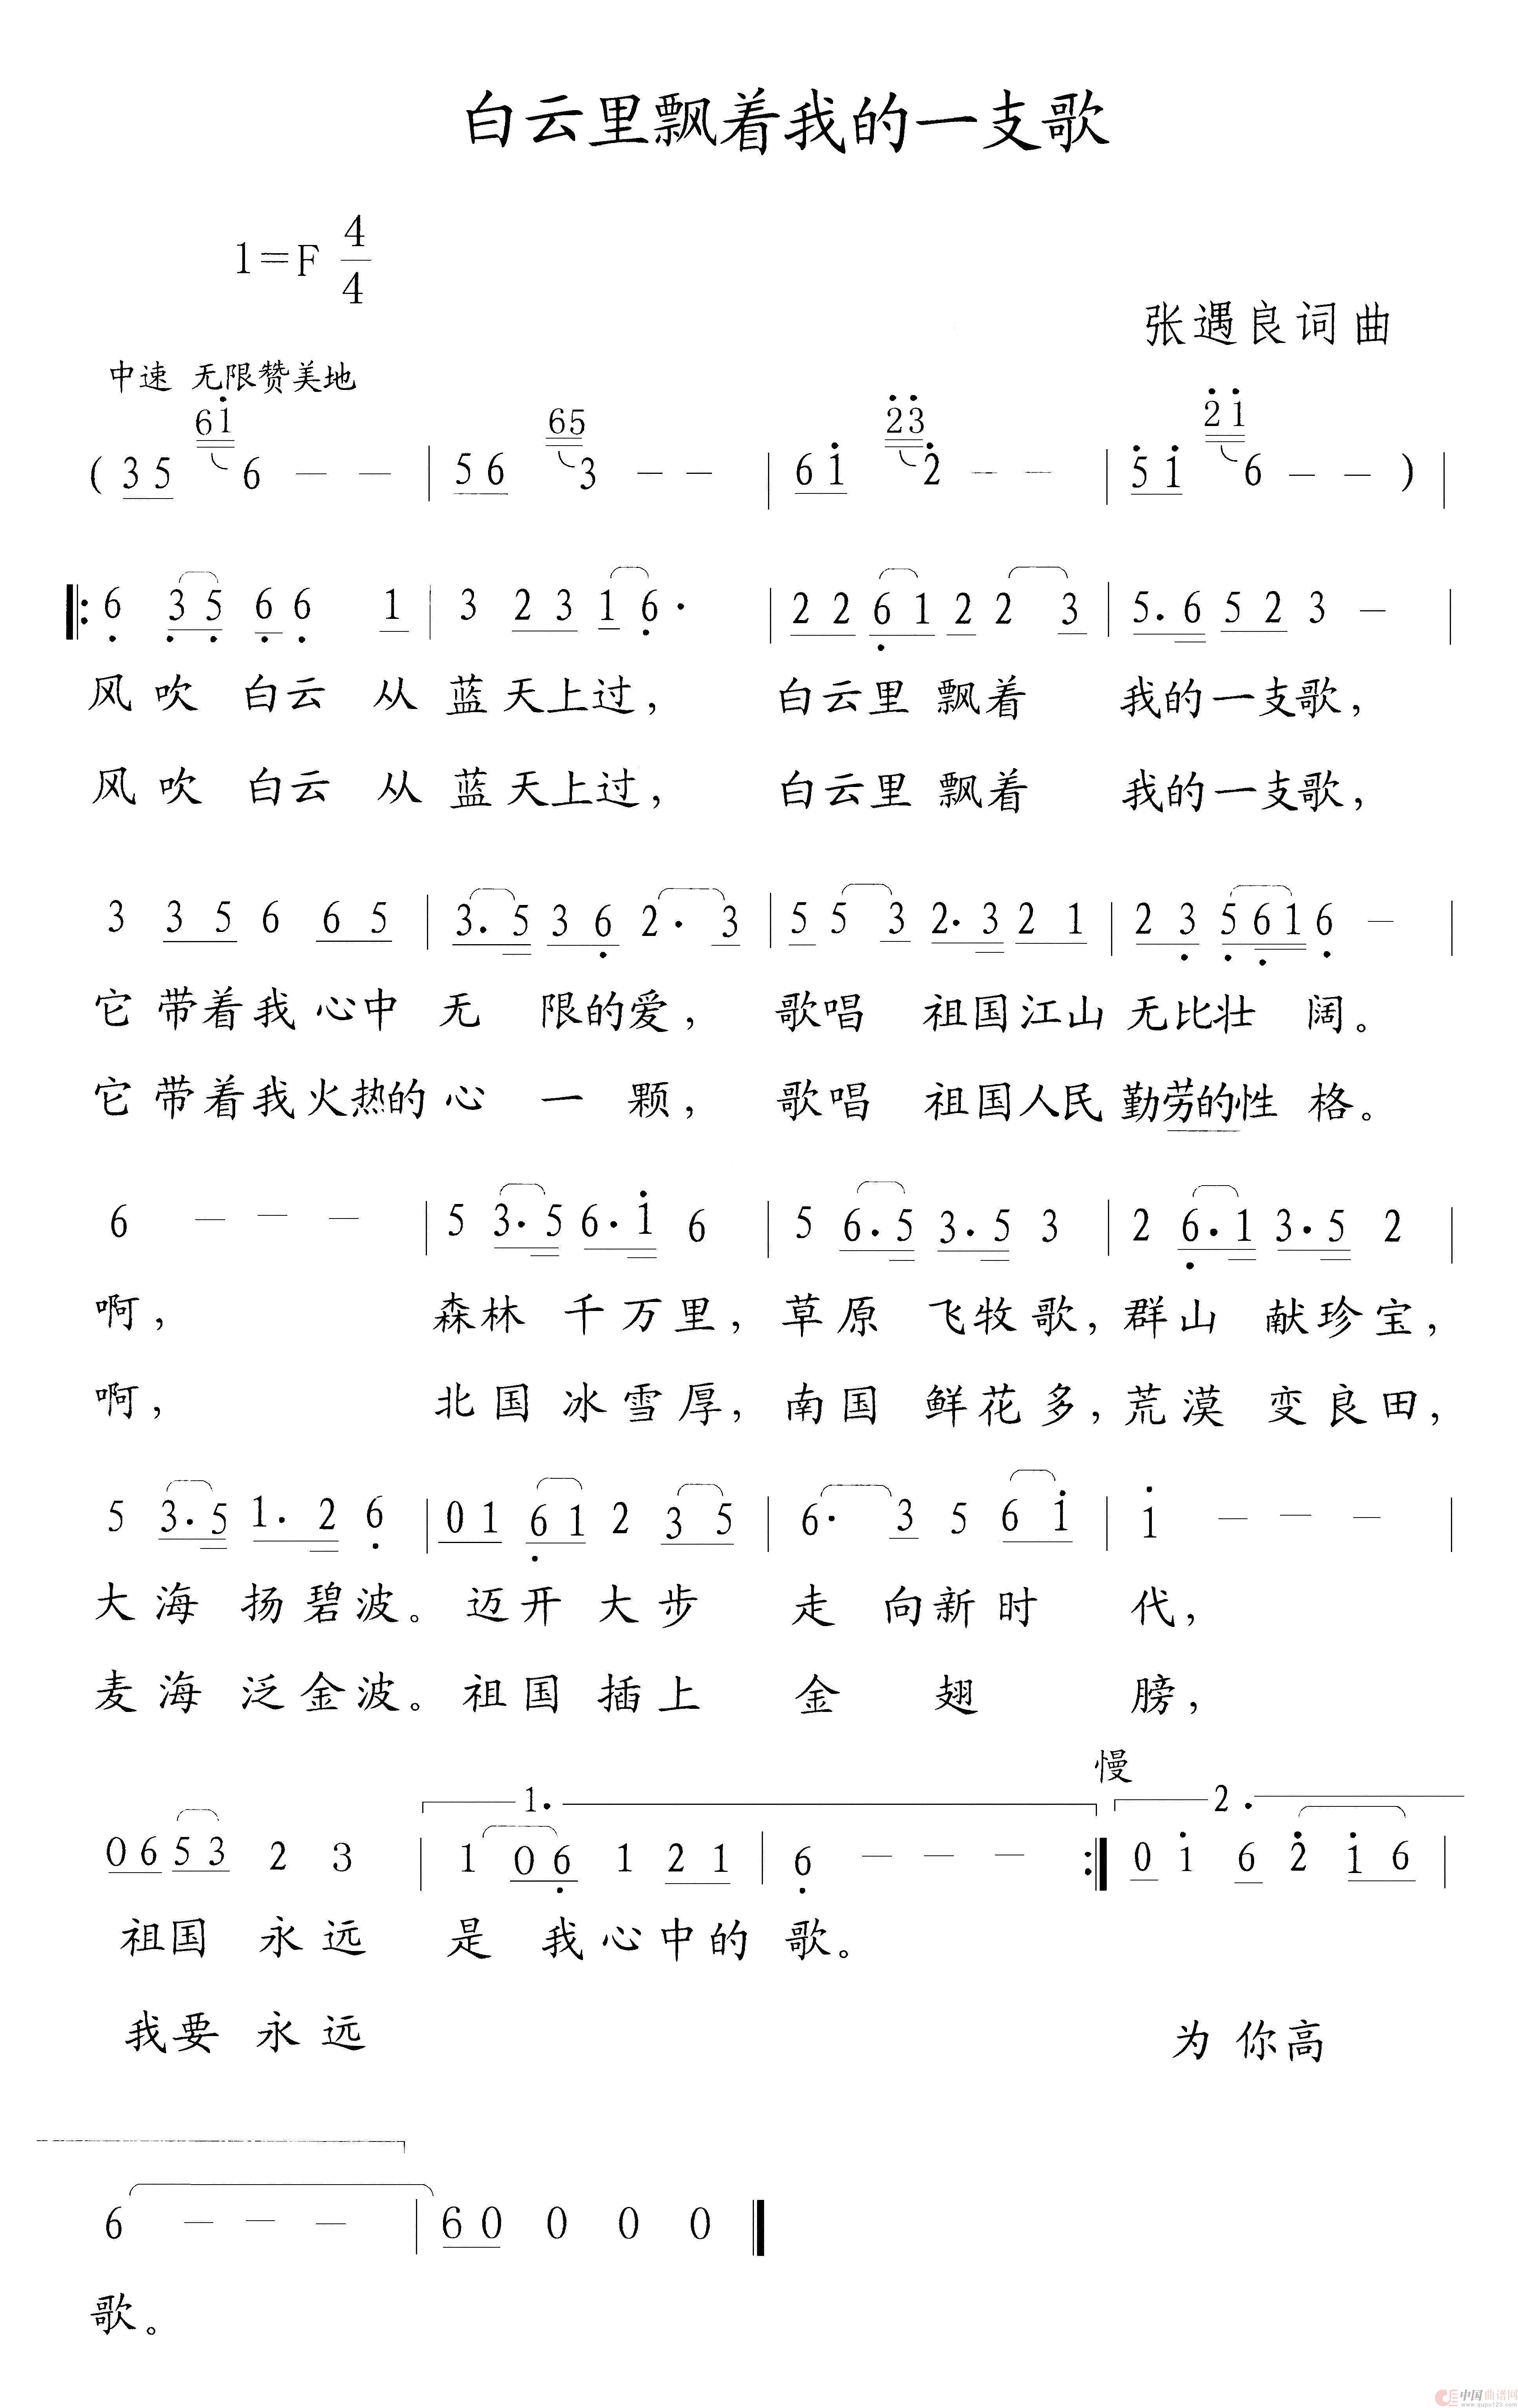 白云里飘着我的一支歌
1=F 4/4
张遇良词曲
中速 无限赞美地
61 65 23 21
( 35 6 — — | 56 3 — — | 61 2 — — | 51 6 — — ) |
6 35 66 1 | 3 23 16· | 22 61 22 3 | 5·6 52 3 — |
风吹 白云 从 蓝天上过， 白云里 飘着 我的一支歌，
风吹 白云 从 蓝天上过， 白云里 飘着 我的一支歌，
3 35 6 65 | 3·5 36 2·3 | 55 3 2·3 21 | 23 561 6 — |
它带着我心中 无 限的爱， 歌唱 祖国江山 无比壮 阔。
它带着我火热的心 一 颗， 歌唱 祖国人民 勤劳的性 格。
6 — — — | 5 3·5 6·1 6 | 5 6·5 3·5 3 | 2 6·1 3·5 2 |
啊， 森林 千万里，草原 飞牧歌，群山 献珍宝，
啊， 北国冰雪厚，南国 鲜花多，荒漠 变良田，
5 3·5 1·2 6 | 01 61 2 35 | 6·3 5 61 | 1 — — — |
大海 扬碧波。迈开 大步 走 向新时 代，
麦海 泛金波。祖国 插上 金 翅 膀，
慢
1. 2.
06 53 2 3 | 1 06 1 21 | 6 — — — :| 0 1 6 2 16 |
祖国 永远 是 我心中的 歌。
我要 永远 为 你高
6 — — — | 60 0 0 0
歌。
中国曲谱网
www.qupu123.com